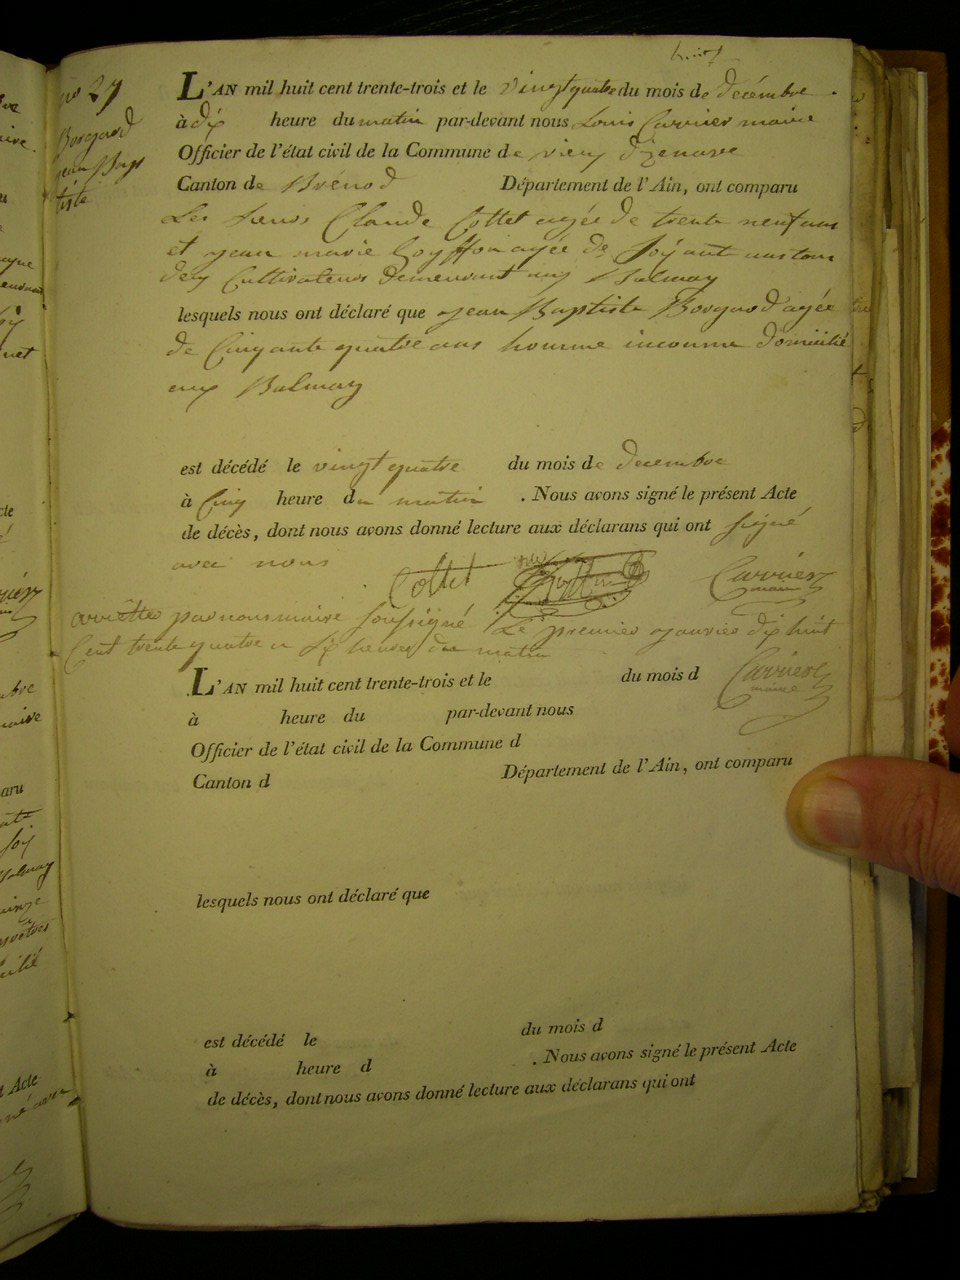 huit
no 27
Borgard
jean Bap
tiste
L'AN mil huit cent trente-trois et le vingt quatre du mois de décembre
à dix heure du matin par-devant nous Louis Carrier maire
Officier de l'état civil de la Commune de vieu d'izenave
Canton de Brénod Département de l'Ain, ont comparu
Les sieurs Claude Cottet agée de trente neuf ans
et jean marie Goyffon agée de soixante ans tous
deux Cultivateurs demeurant aux Balmay
lesquels nous ont déclaré que jean Baptiste Borgard agée
de Cinquante quatre ans homme inconnu domicilié
aux Balmay
est décédé le vingt quatre du mois de decembre
à Cinq heure du matin . Nous avons signé le présent Acte
de décès, dont nous avons donné lecture aux déclarans qui ont signé
avec nous Cottet Carrier
maire
arrêttée par nous maire soussigné Le premier janvier dix huit
Cent trente quatre a six heures du matin
Carrier
maire
L'AN mil huit cent trente-trois et le du mois d
à heure du par-devant nous
Officier de l'état civil de la Commune d
Canton d Département de l'Ain, ont comparu
lesquels nous ont déclaré que
est décédé le du mois d
à heure d . Nous avons signé le présent Acte
de décès, dont nous avons donné lecture aux déclarans qui ont